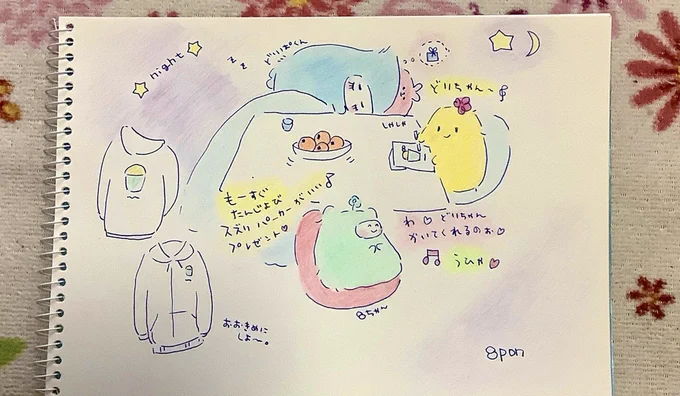 night
z z
どりぽくん
どりちゃん～
しゃしゃ
もーすぐ
たんじょび
スズリパーカーがいい
プレゼント♡
わ♡どりちゃん
かいてくれるのぉ♡
うひゃ
8ちゃ～
おおきめに
しよ～。
8pon